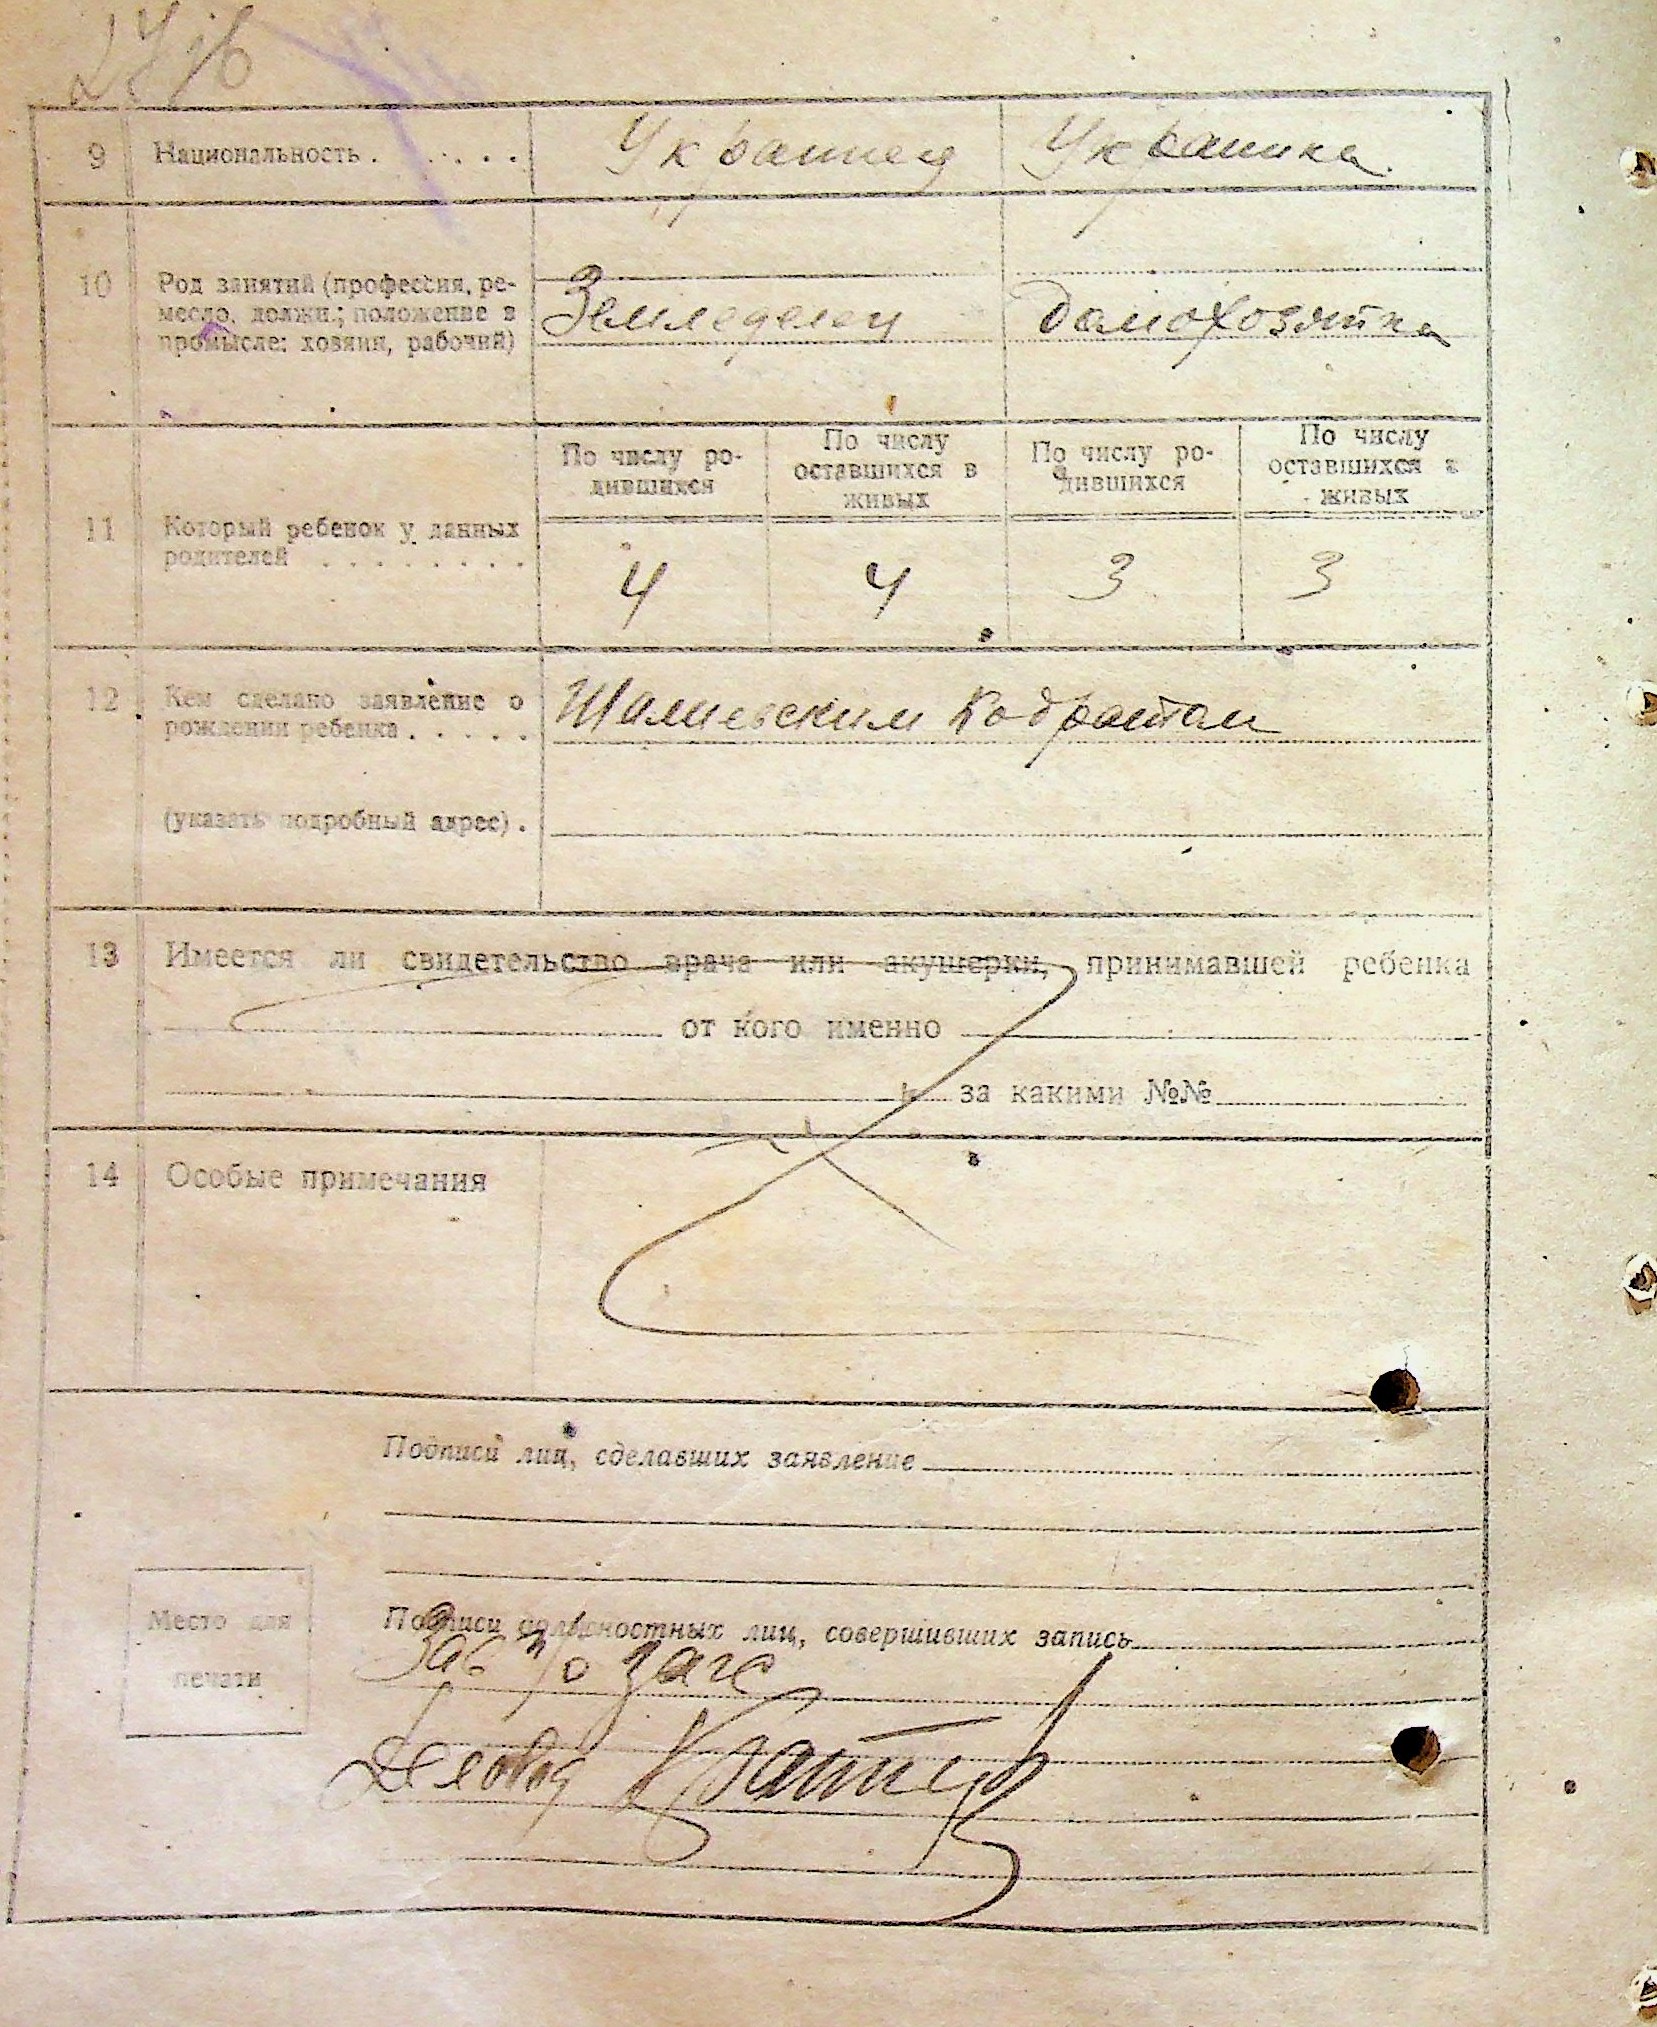 9 Национальность . . . . . Украинец Украинка.
10 Род занятий (профессия, ре-
месло, должн.; положение в
промысле: хозяин, рабочий)
Земледелец домохозяйка
11 Который ребенок у данных
родителей . . . . . . . .
По числу ро-
дившихся
По числу
оставшихся в
живых
По числу ро-
дившихся
По числу
оставшихся в
живых
4 4 3 3
12 Кем сделано заявление о
рождении ребенка . . . . .
(указать подробный адрес) .
13 Имеется ли свидетельство врача или акушерки, принимавшей ребенка
от кого именно
за какими №№
14 Особые примечания
Подписи лиц, сделавших заявление
Место для
печати
Подписи должностных лиц, совершивших запись
Зав п/о загс
Деловод